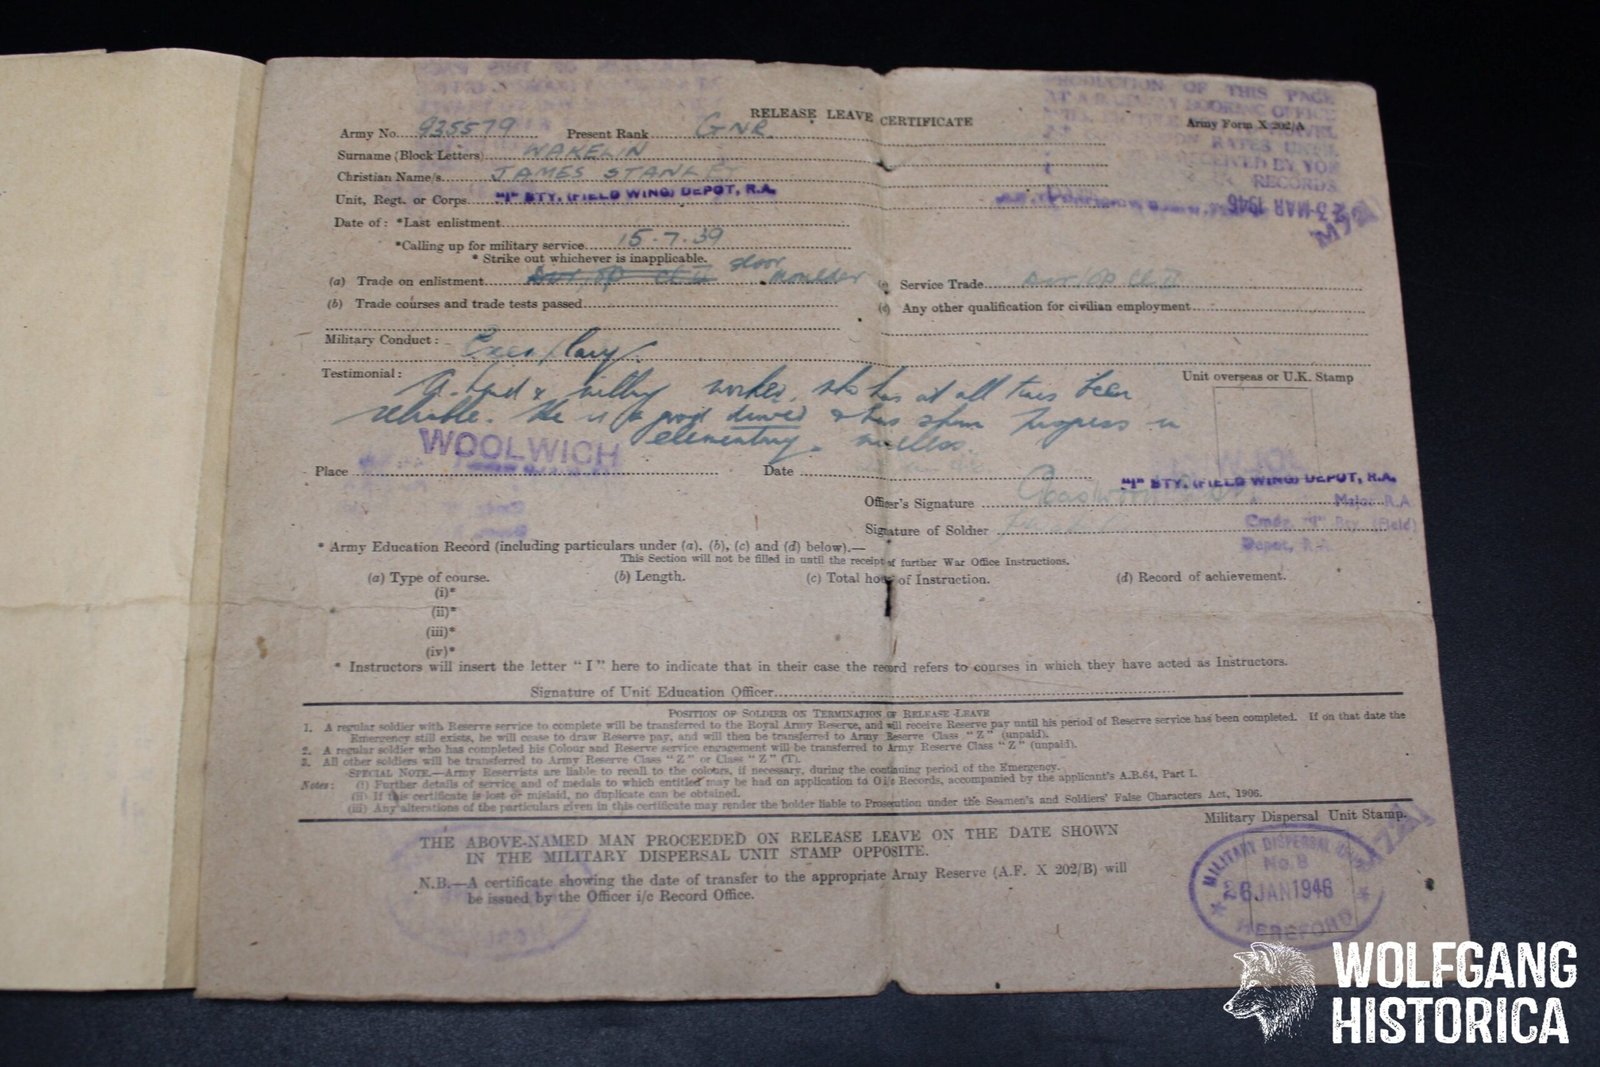 PRODUCTION OF THIS PAGE
AT A RAILWAY BOOKING OFFICE
RATES UNTIL
RECEIVED BY YOU
RECORDS
RELEASE LEAVE CERTIFICATE
Army Form X 202/A
Army No. 935579 Present Rank GNR
Surname (Block Letters) WAKELIN
Christian Name/s. JAMES STANLEY
23 MAR 1946
Unit, Regt. or Corps. "I" BTY. (FIELD WING) DEPOT, R.A.
Date of: *Last enlistment
*Calling up for military service 15.7.39
* Strike out whichever is inapplicable.
(a) Trade on enlistment floor moulder
Service Trade Dvr/op Cl. II
(b) Trade courses and trade tests passed
Any other qualification for civilian employment
Military Conduct: Exemplary
Testimonial: A good & willing worker, who has at all times been
reliable. He is a good & has shown progress in
elementary
Unit overseas or U.K. Stamp
WOOLWICH
Place Date
"I" BTY. (FIELD WING) DEPOT, R.A.
Officer's Signature
Major R.A
Signature of Soldier
Cmdr. "I" Bty. (Field)
Depot, R.A.
* Army Education Record (including particulars under (a), (b), (c) and (d) below).—
This Section will not be filled in until the receipt of further War Office Instructions.
(a) Type of course. (b) Length. (c) Total hours of Instruction. (d) Record of achievement.
(i)*
(ii)*
(iii)*
(iv)*
* Instructors will insert the letter "I" here to indicate that in their case the record refers to courses in which they have acted as Instructors.
Signature of Unit Education Officer
POSITION OF SOLDIER ON TERMINATION OF RELEASE LEAVE
1. A regular soldier with Reserve service to complete will be transferred to the Royal Army Reserve, and will receive Reserve pay until his period of Reserve service has been completed. If on that date the
Emergency still exists, he will cease to draw Reserve pay, and will then be transferred to Army Reserve Class "Z" (unpaid).
2. A regular soldier who has completed his Colour and Reserve service engagement will be transferred to Army Reserve Class "Z" (unpaid).
3. All other soldiers will be transferred to Army Reserve Class "Z" or Class "Z" (T).
SPECIAL NOTE.—Army Reservists are liable to recall to the colours, if necessary, during the continuing period of the Emergency.
Notes: (i) Further details of service and of medals to which entitled may be had on application to O i/c Records, accompanied by the applicant's A.B.64, Part I.
(ii) If this certificate is lost or mislaid, no duplicate can be obtained.
(iii) Any alterations of the particulars given in this certificate may render the holder liable to Prosecution under the Seamen's and Soldiers' False Characters Act, 1906.
Military Dispersal Unit Stamp.
THE ABOVE-NAMED MAN PROCEEDED ON RELEASE LEAVE ON THE DATE SHOWN
IN THE MILITARY DISPERSAL UNIT STAMP OPPOSITE.
N.B.—A certificate showing the date of transfer to the appropriate Army Reserve (A.F. X 202/B) will
be issued by the Officer i/c Record Office.
MILITARY DISPERSAL UNIT
No. 8
26 JAN 1946
HEREFORD
WOLFGANG
HISTORICA